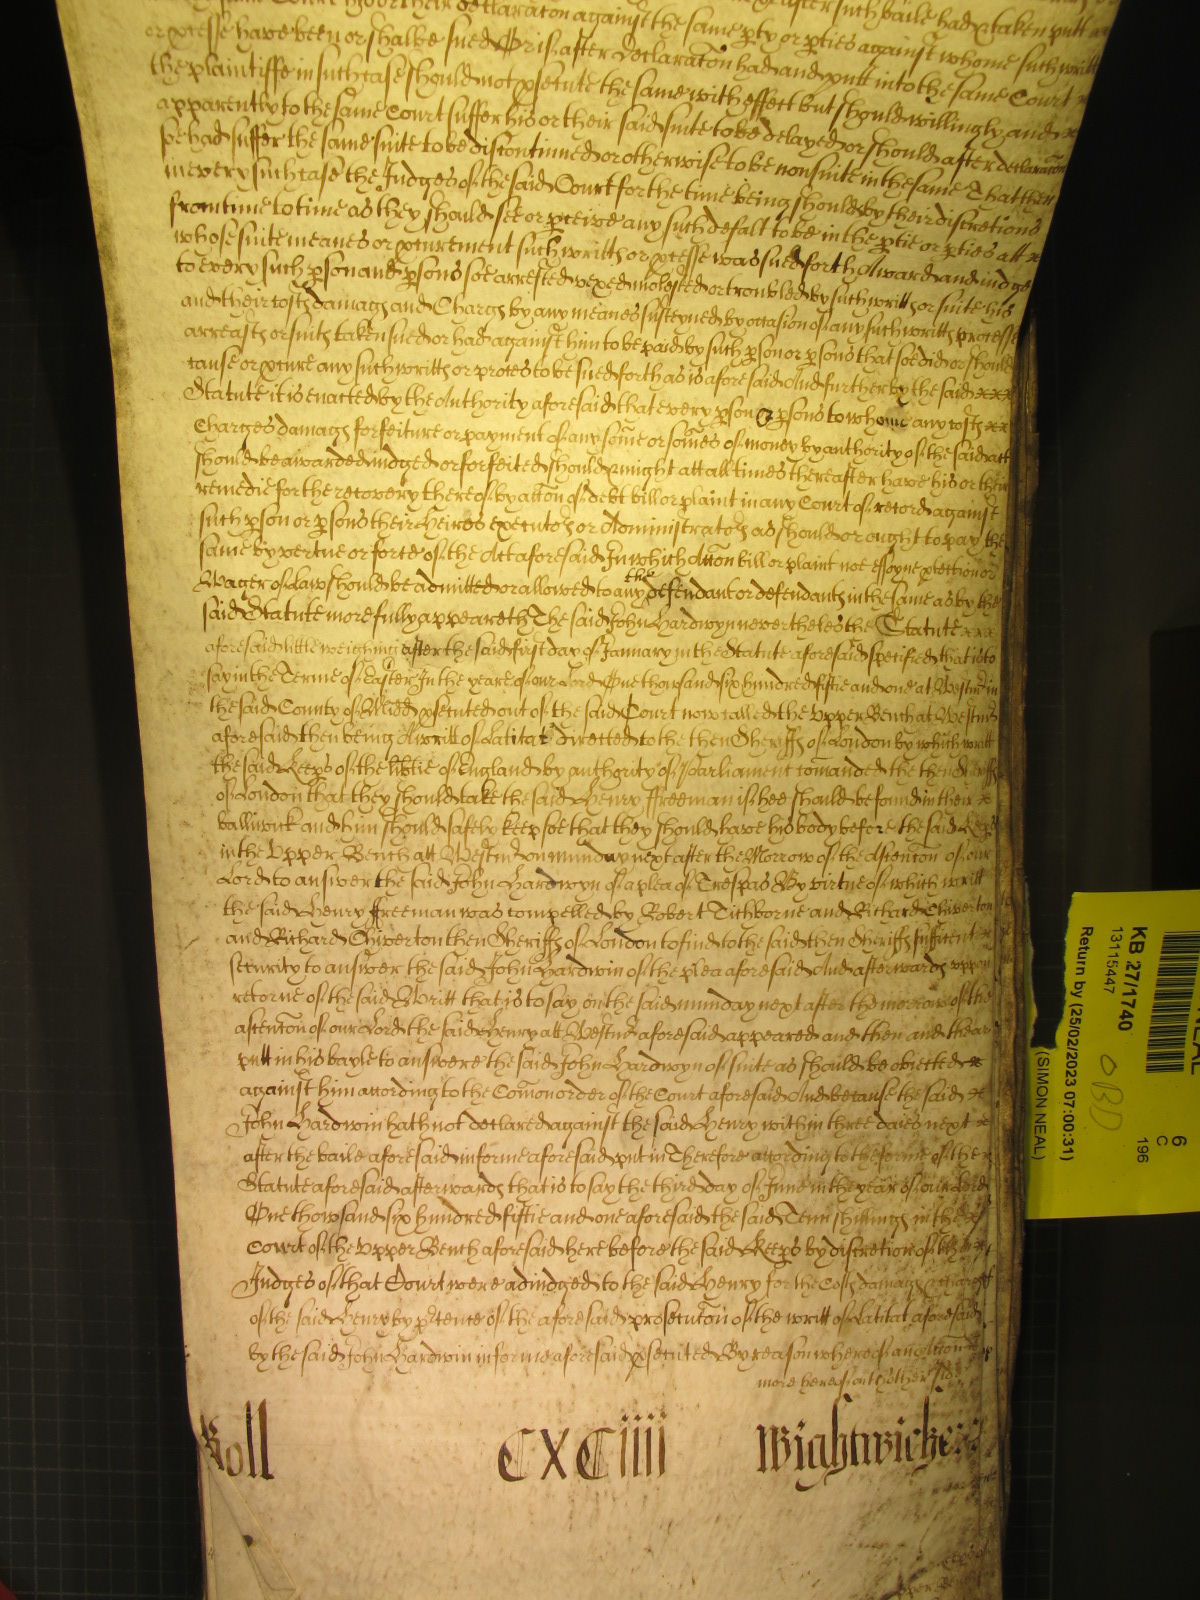 or their declaracon against the same pty or pties against whome such writt
or pcesse have been or shalbe sued Or if after declaracon had and putt into the same Court
the plaintiffe in such case should not psecute the same with effect but should willingly and
apparently to the same Court suffer his or their said suite to be delayed or should after declaracon
soe had suffer the same suite to be discontinued or otherwise to be nonsuite in the same That then
in every such case the Judges of the said Court for the time being should by their discretions
from time to time as they should see or pceive any such defalt to be in the ptie or pties att
whose suite meanes or pcurement such writt or pcesse was sued forth Award and iudge
to every such pson and psons soe arrested vexed molested or troubled by such writt or suite his
and their costs damags and Chargs by any meanes susteyned by occasion of any such writts processe
arreasts or suits taken sued or had against him to be paid by such pson or psons that soe did or should
cause or pcure any such writts or proces to be sued forth as is aforesaid And further by the said
Statute it is enacted by the Authority aforesaid that every pson & psons to whome any costs
Charges damags forfeiture or payment of any some or somes of money by authority of the said act
should be awarded iudged or forfeited should & might att all times thereafter have his or their
remedie for the recovery thereof by accon of debt bill or plaint in any Court of record against
such pson or psons their Heires executors or Administrators as should or ought to pay the
same by vertue or force of the Act aforesaid In which Accon bill or plaint noe essoyne pteccion or
Wager of Law should be admitted or allowed to any the defendant or defendants in the same as by the
said Statute more fully appeareth The said John Hardwyn neverthelesthe Statute
aforesaid little weighing after the said first day of January in the Statute aforesaid specified that is to
say in the Terme of Easter In the yeare of our Lord One thowsand six hundred fiftie and one at Westm in
the said County of Midd psecuted out of the said Court now called the Upper Bench at Westm
aforesaid then being A writt of Latitat directed to the then Sheriffs of London by which writt
the said Keeps of the libtie of England by authority of Parliament comanded the then Sheriffs
of London that they should take the said Henry ffreeman if hee should be found in their
balliwick and him should safely keep soe that they should have his body before the said Keeps
in the Upper Bench att Westm on munday next after the Morrow of the Ascencon of our
Lord to answer the said John Hardwyn of a plea of Trespas By virtue of which writt
the said Henry ffreeman was compelled by Robert Tichborne and Richard Chiverton
and Richard Chiverton then Sheriffs of London to find to the said then Sheriffs sufficent
security to answer the said John Hardwin of the plea aforesaid And afterwards uppon
retorne of the said Writt that is to say on the said munday next after the morrow of the
ascencon of our Lord the said Henry att Westm aforesaid appeared and then and there
putt in his bayle to answere the said John Hardwyn of suite as should be obiected
against him according to the Comon order of the Court aforesaid And because the said
John Hardwin hath not declared against the said Henry within three daies next
after the baile aforesaid in forme aforesaid put in Therefore according to the forme of the
Statute aforesaid afterwards that is to say the third day of June in the year of our Lord
One thowsand six hundred fiftie and one aforesaid the said Tenn shillings in the
Court of the Upper Bench aforesaid here before the said Keeps by discretion of the
Judges of that Court were adiudged to the said Henry for the Costs damags & chargs
of the said Henry by ptence of the aforesaid prosecucon of the writt of Latitat aforesaid
by the said John Hardwin in forme aforesaid psecuted By reason whereof an Accon
more hereof on th other side
Roll CXCiiii Wightwicke
KB 27/1740
13115447
Return by (25/02/2023 07:00:31)
(SIMON NEAL)
6
C
196